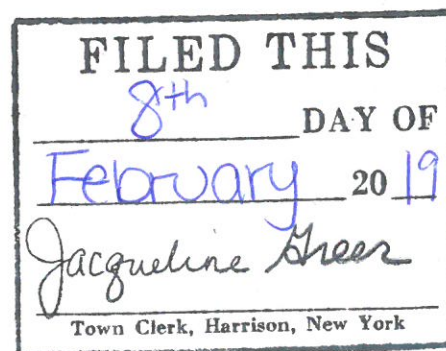 FILED THIS
8th DAY OF
February 20 19
Jacqueline Greer
Town Clerk, Harrison, New York